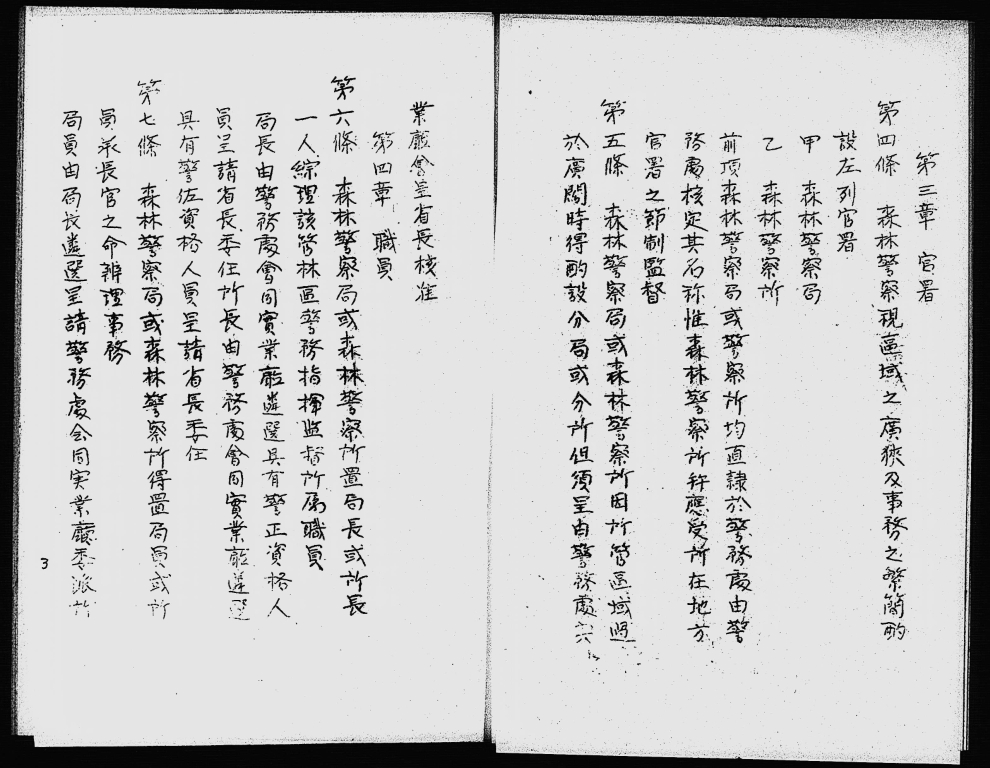 第三章　官署
第四條　森林警察視區域之廣狹及事務之繁簡酌
設左列官署
甲　森林警察局
乙　森林警察所
前項森林警察局或警察所均直隸於警務處由警
務處核定其名称惟森林警察所幷應受所在地方
官署之節制監督
第五條　森林警察局或森林警察所因所管區域過
於廣闊時得酌設分局或分所但須呈由警務處
業廳會呈省長核准
第四章　職員
第六條　森林警察局或森林警察所置局長或所長
一人綜理該管林區警務指揮監督所属職員
局長由警務處會同實業廳遴選具有警正資格人
員呈請省長委任所長由警務處會同實業廳遴選
具有警佐資格人員呈請省長委任
第七條　森林警察局或森林警察所得置局員或所
員承長官之命辨理事務
局員由局長遴選呈請警務處会同実業廳委派所
3